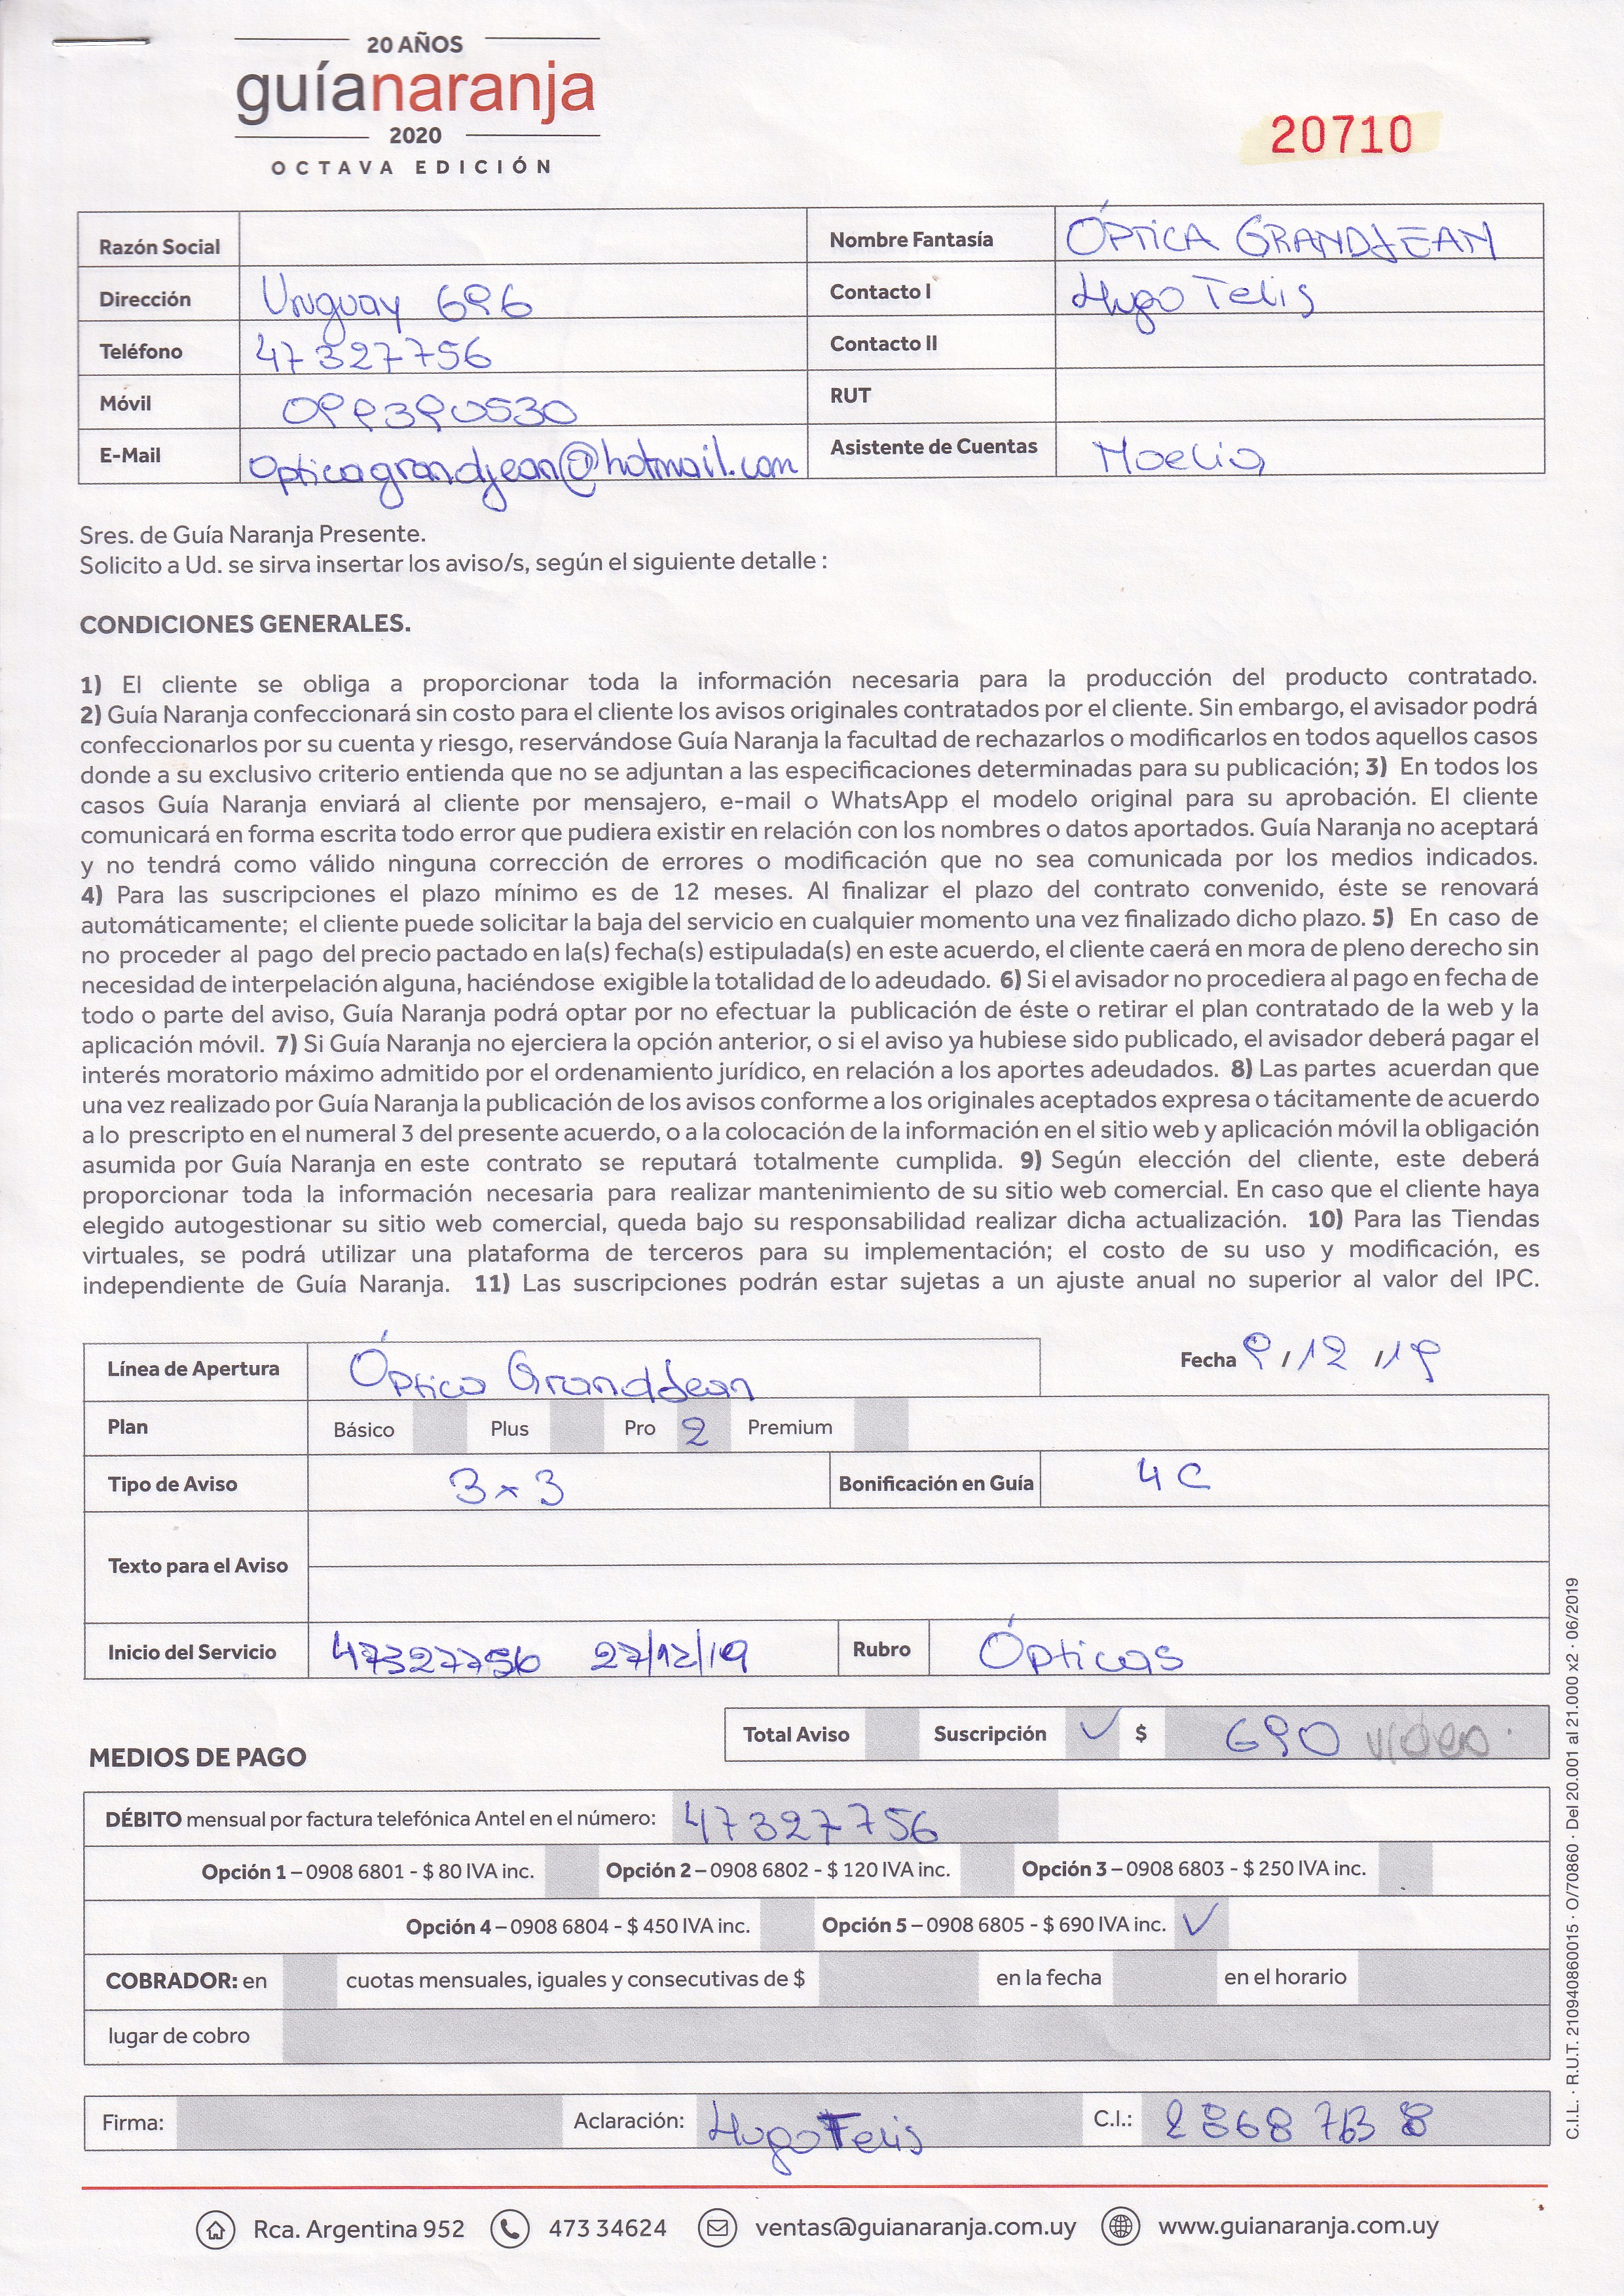 20 AÑOS
guíanaranja
2020
OCTAVA EDICIÓN
20710
Razón Social
Nombre Fantasía ÓPTICA GRANDJEAN
Dirección Uruguay 696
Contacto I Hugo Felis
Teléfono 47327756
Contacto II
Móvil 099390530
RUT
E-Mail opticagrandjean@hotmail.com
Asistente de Cuentas Noelia
Sres. de Guía Naranja Presente.
Solicito a Ud. se sirva insertar los aviso/s, según el siguiente detalle :
CONDICIONES GENERALES.
1) El cliente se obliga a proporcionar toda la información necesaria para la producción del producto contratado.
2) Guía Naranja confeccionará sin costo para el cliente los avisos originales contratados por el cliente. Sin embargo, el avisador podrá
confeccionarlos por su cuenta y riesgo, reservándose Guía Naranja la facultad de rechazarlos o modificarlos en todos aquellos casos
donde a su exclusivo criterio entienda que no se adjuntan a las especificaciones determinadas para su publicación; 3) En todos los
casos Guía Naranja enviará al cliente por mensajero, e-mail o WhatsApp el modelo original para su aprobación. El cliente
comunicará en forma escrita todo error que pudiera existir en relación con los nombres o datos aportados. Guía Naranja no aceptará
y no tendrá como válido ninguna corrección de errores o modificación que no sea comunicada por los medios indicados.
4) Para las suscripciones el plazo mínimo es de 12 meses. Al finalizar el plazo del contrato convenido, éste se renovará
automáticamente; el cliente puede solicitar la baja del servicio en cualquier momento una vez finalizado dicho plazo. 5) En caso de
no proceder al pago del precio pactado en la(s) fecha(s) estipulada(s) en este acuerdo, el cliente caerá en mora de pleno derecho sin
necesidad de interpelación alguna, haciéndose exigible la totalidad de lo adeudado. 6) Si el avisador no procediera al pago en fecha de
todo o parte del aviso, Guía Naranja podrá optar por no efectuar la publicación de éste o retirar el plan contratado de la web y la
aplicación móvil. 7) Si Guía Naranja no ejerciera la opción anterior, o si el aviso ya hubiese sido publicado, el avisador deberá pagar el
interés moratorio máximo admitido por el ordenamiento jurídico, en relación a los aportes adeudados. 8) Las partes acuerdan que
una vez realizado por Guía Naranja la publicación de los avisos conforme a los originales aceptados expresa o tácitamente de acuerdo
a lo prescripto en el numeral 3 del presente acuerdo, o a la colocación de la información en el sitio web y aplicación móvil la obligación
asumida por Guía Naranja en este contrato se reputará totalmente cumplida. 9) Según elección del cliente, este deberá
proporcionar toda la información necesaria para realizar mantenimiento de su sitio web comercial. En caso que el cliente haya
elegido autogestionar su sitio web comercial, queda bajo su responsabilidad realizar dicha actualización. 10) Para las Tiendas
virtuales, se podrá utilizar una plataforma de terceros para su implementación; el costo de su uso y modificación, es
independiente de Guía Naranja. 11) Las suscripciones podrán estar sujetas a un ajuste anual no superior al valor del IPC.
Línea de Apertura Óptica GrandJean
Fecha 9/12/19
Plan Básico Plus Pro 2 Premium
Tipo de Aviso 3x3 Bonificación en Guía 4C
Texto para el Aviso
Inicio del Servicio 47327756 27/12/19 Rubro Ópticas
Total Aviso Suscripción ✓ $ 690 video
MEDIOS DE PAGO
DÉBITO mensual por factura telefónica Antel en el número: 47327756
Opción 1 – 0908 6801 - $ 80 IVA inc. Opción 2 – 0908 6802 - $ 120 IVA inc. Opción 3 – 0908 6803 - $ 250 IVA inc.
Opción 4 – 0908 6804 - $ 450 IVA inc. Opción 5 – 0908 6805 - $ 690 IVA inc. ✓
COBRADOR: en cuotas mensuales, iguales y consecutivas de $ en la fecha en el horario
lugar de cobro
Firma: Aclaración: Hugo Felis C.I.:
C.I.L. · R.U.T. 210940860015 · O/70860 · Del 20.001 al 21.000 x2 · 06/2019
Rca. Argentina 952 473 34624 ventas@guianaranja.com.uy www.guianaranja.com.uy